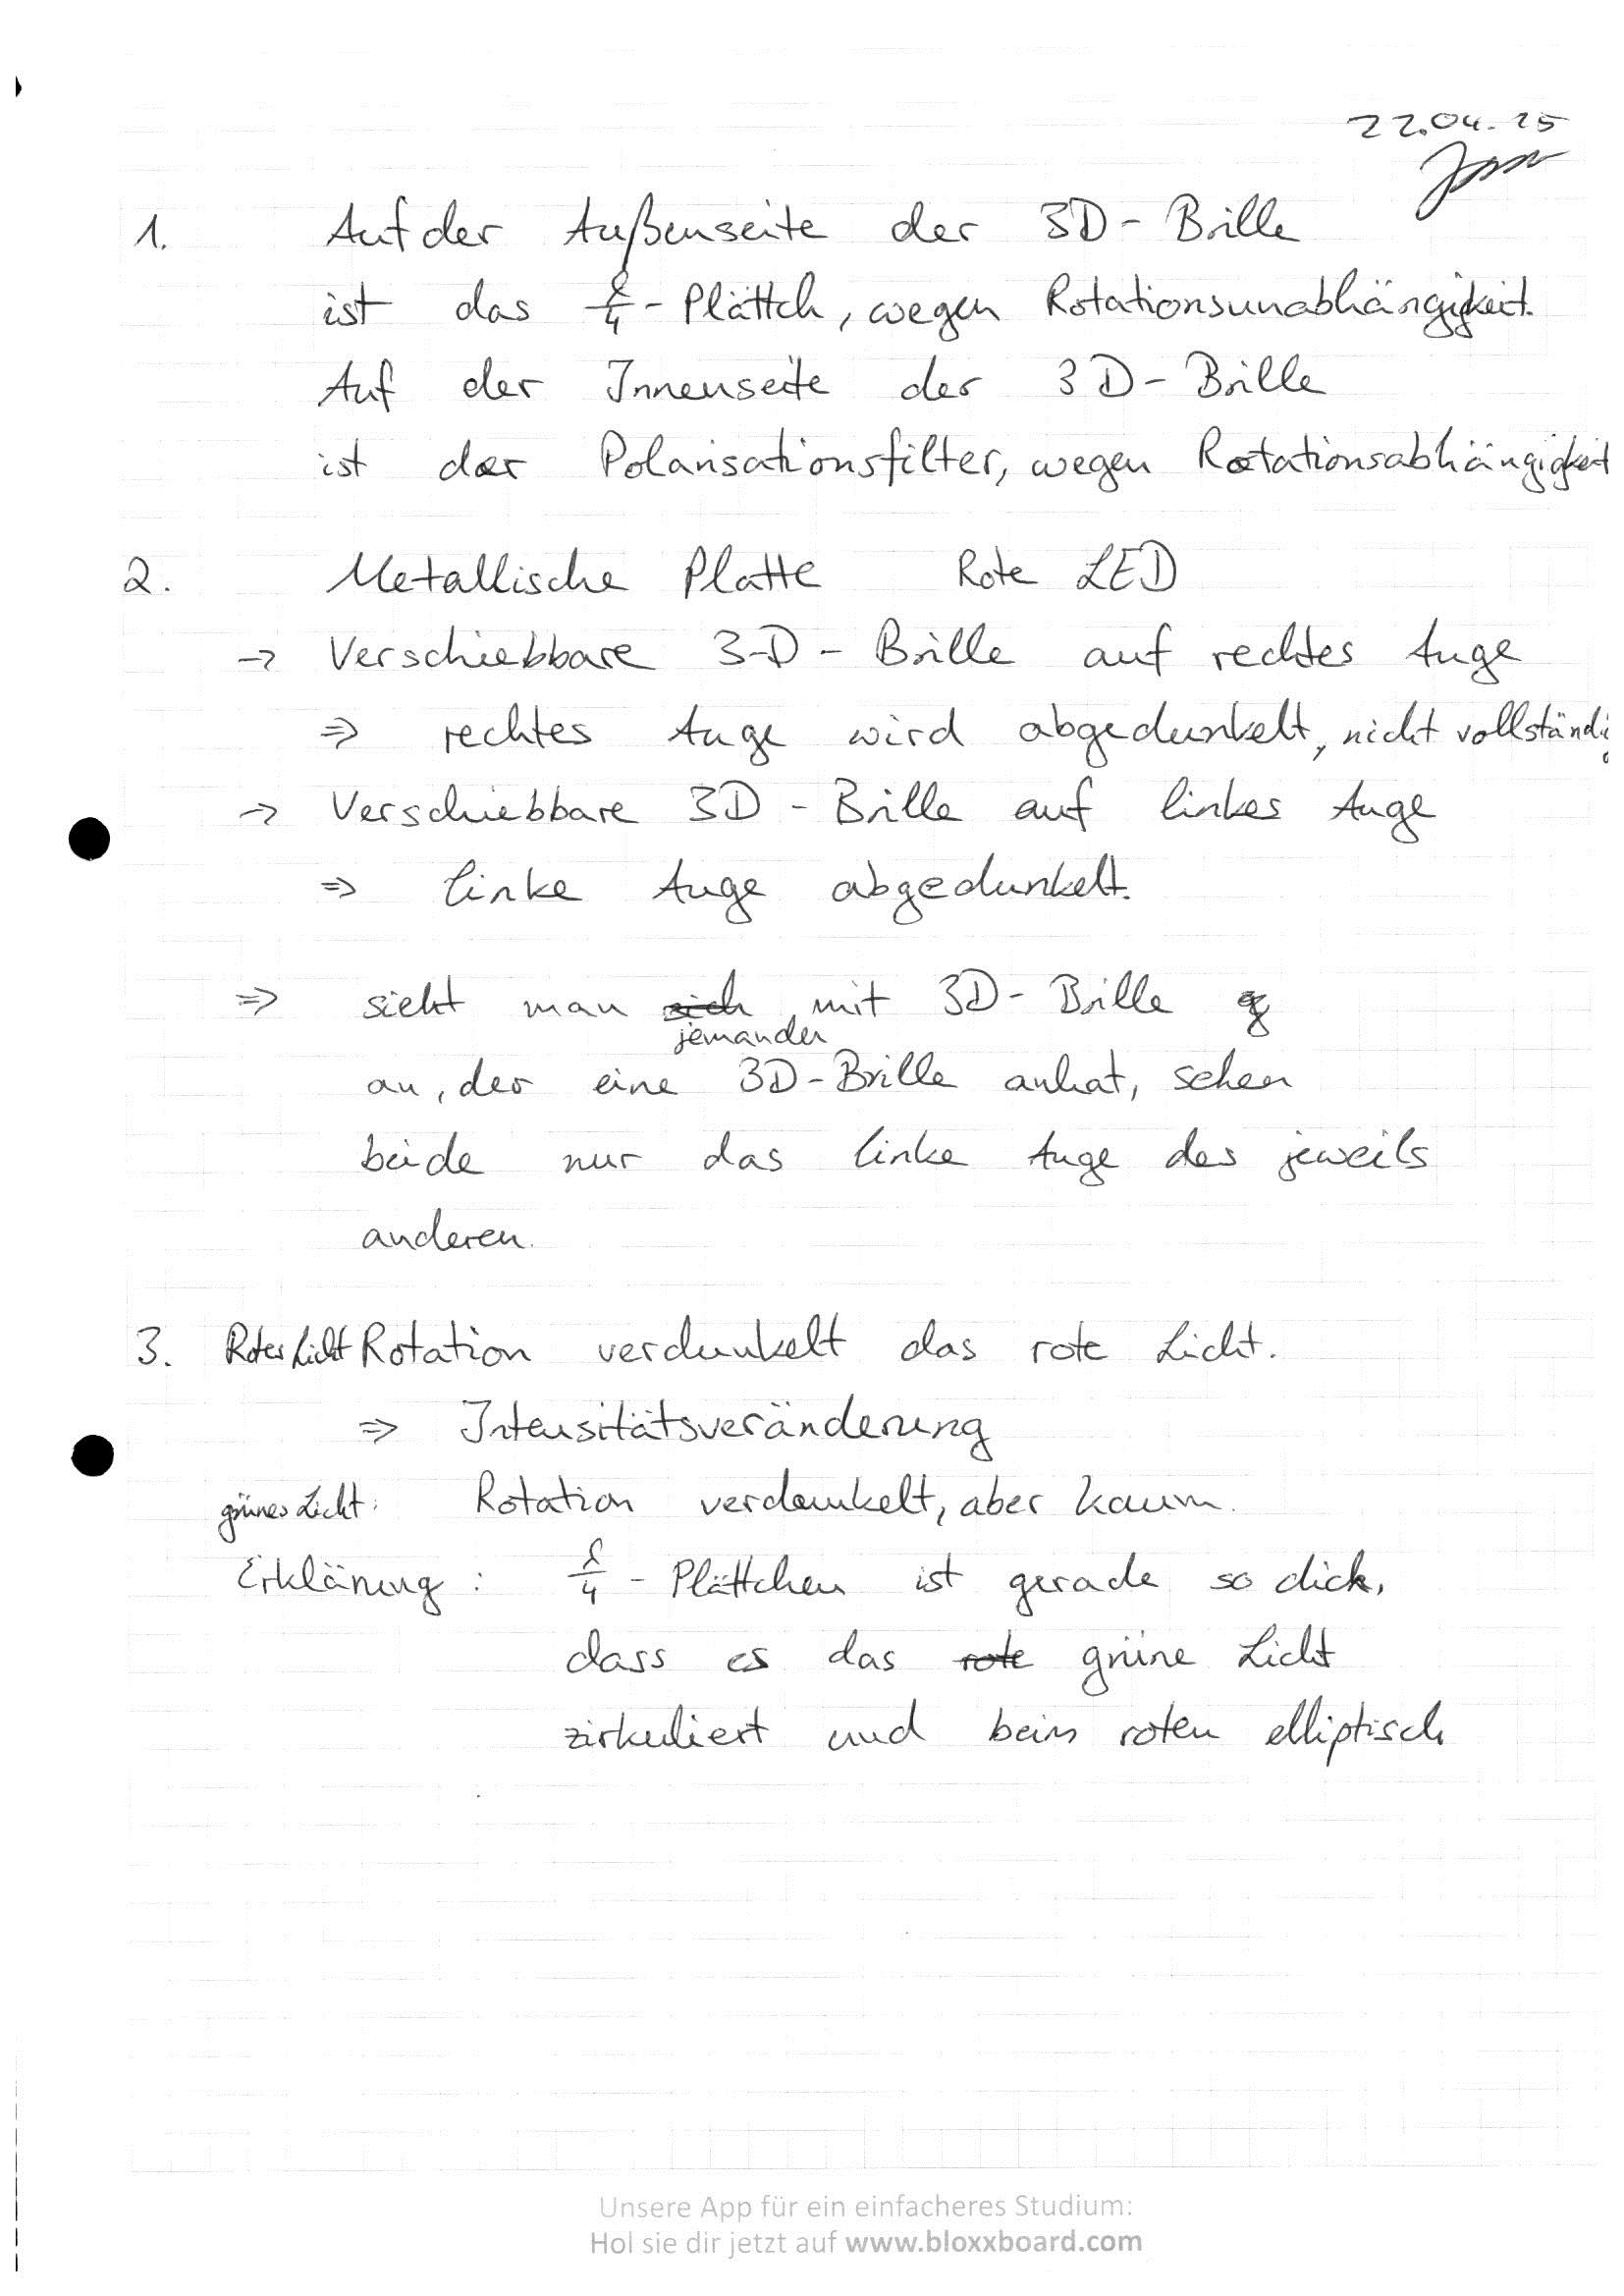 22.04.25
1. Auf der Außenseite der 3D-Brille
ist das λ/4-Plättch, wegen Rotationsunabhängigkeit.
Auf der Innenseite der 3D-Brille
ist der Polarisationsfilter, wegen Rotationsabhängigkeit
2. Metallische Platte Rote LED
→ Verschiebbare 3-D-Brille auf rechtes Auge
⇒ rechtes Auge wird abgedunkelt, nicht vollständig
→ Verschiebbare 3D-Brille auf linkes Auge
⇒ linke Auge abgedunkelt.
⇒ sieht man sich mit 3D-Brille
jemanden
an, der eine 3D-Brille anhat, sehen
beide nur das linke Auge des jeweils
anderen.
3. Rotes Licht Rotation verdunkelt das rote Licht.
⇒ Intensitätsveränderung
grünes Licht: Rotation verdunkelt, aber kaum.
Erklärung: λ/4-Plättchen ist gerade so dick,
dass es das rote grüne Licht
zirkuliert und beim roten elliptisch
Unsere App für ein einfacheres Studium:
Hol sie dir jetzt auf www.bloxxboard.com